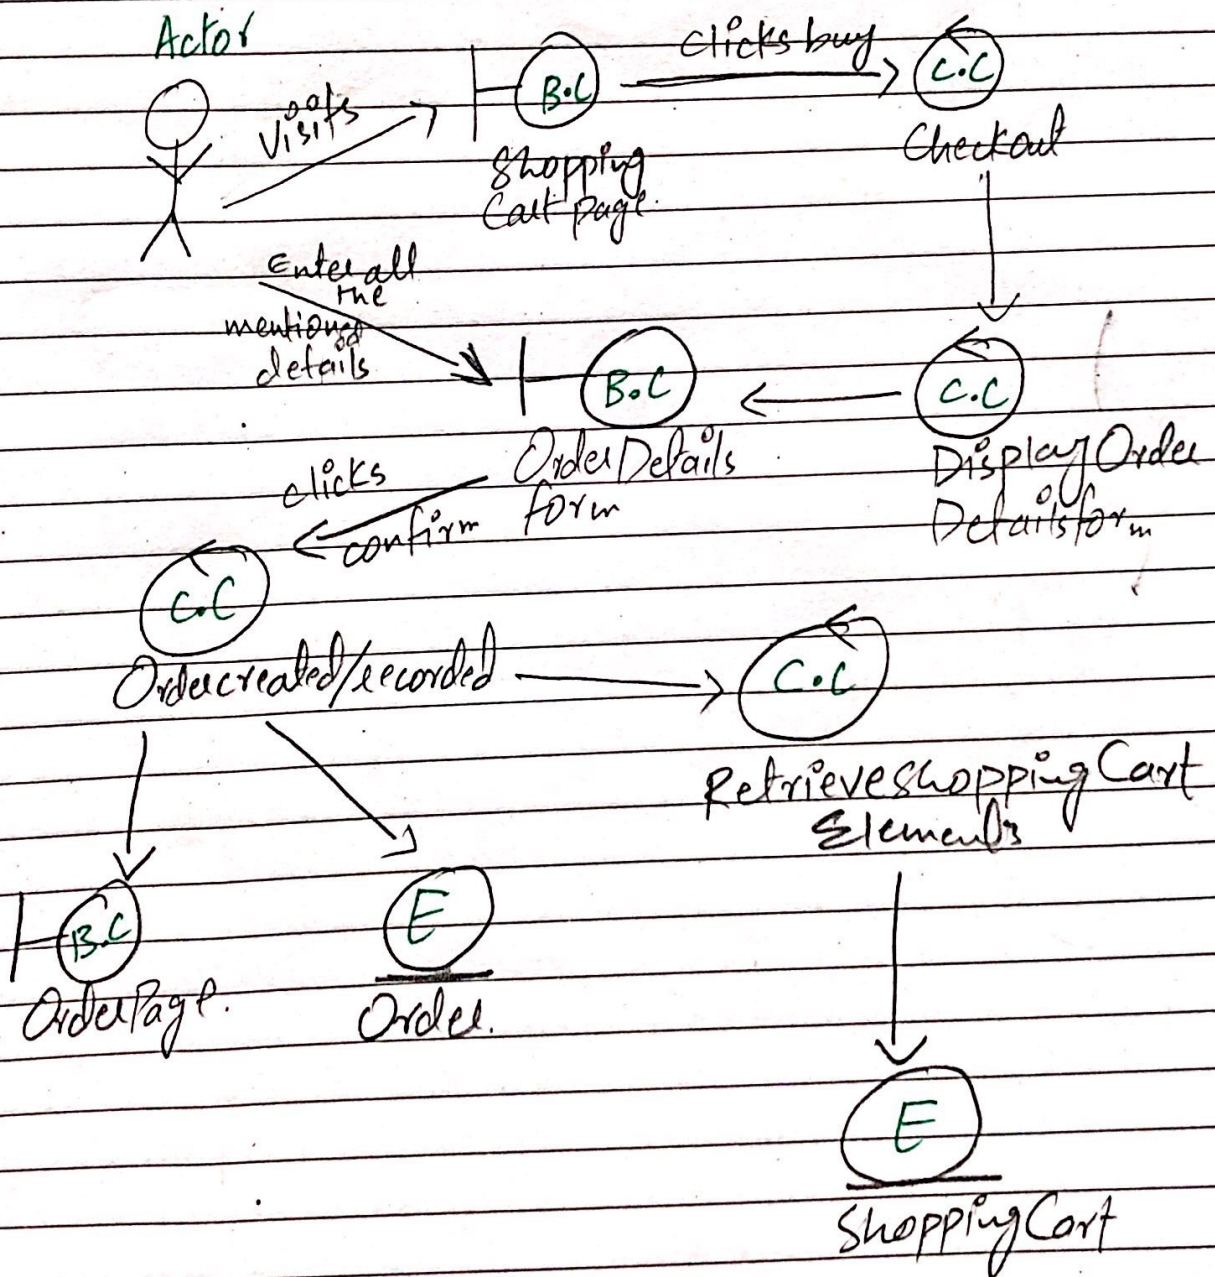 Actor
Visits
B.C
Shopping
Cart page.
Clicks buy
C.C
Checkout
Enter all
the
mentioned
details
B.C
Order Details
form
C.C
Display Order
Details form
clicks
confirm
C.C
Order created/recorded
C.C
Retrieve shopping Cart
Elements
B.C
Order Page.
E
Order.
E
Shopping Cart